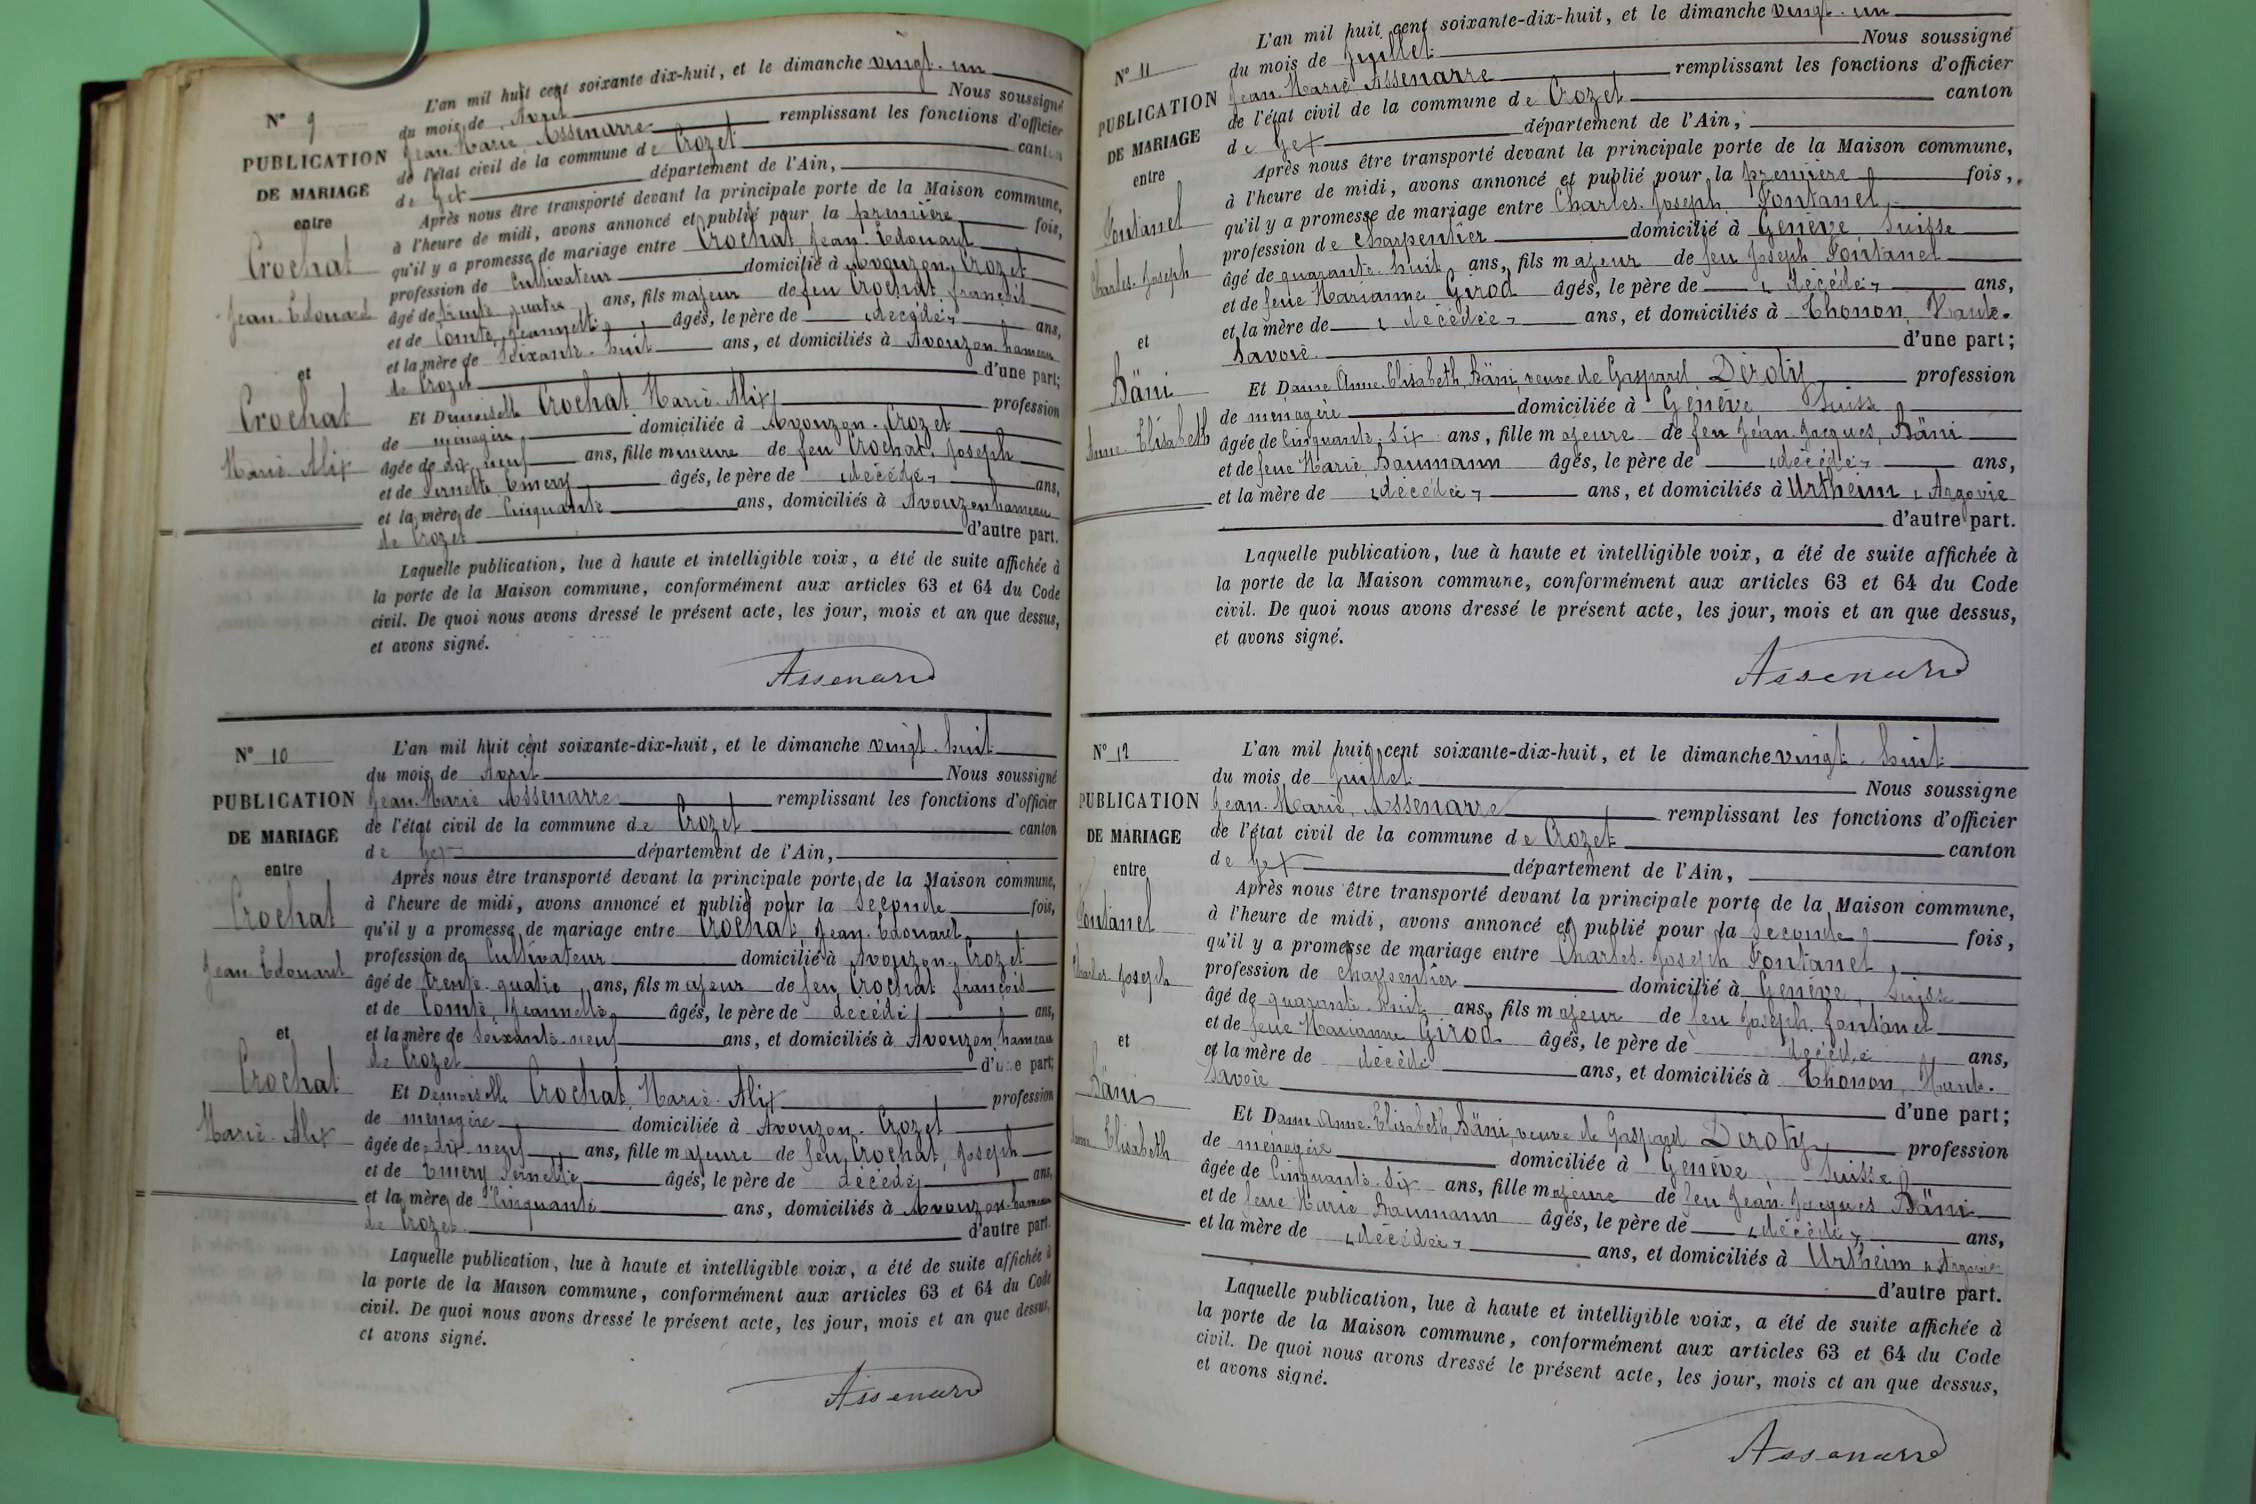 N° 9
PUBLICATION
DE MARIAGE
entre
Crochat
Jean Edouard
et
Crochat
Marie Alix
L'an mil huit cent soixante dix-huit, et le dimanche vingt-un
du mois de Avril Nous soussigné
Jean Marie Assenarre remplissant les fonctions d'officier
de l'état civil de la commune de Crozet canton
de Gex département de l'Ain,
Après nous être transporté devant la principale porte de la Maison commune,
à l'heure de midi, avons annoncé et publié pour la première fois,
qu'il y a promesse de mariage entre Crochat, Jean-Edouard
profession de Cultivateur domicilié à Avouzon, Crozet
âgé de trente quatre ans, fils majeur de feu Crochat françois
et de Comte, Jeannette, âgés, le père de décédé ans,
et la mère de Soixante-huit ans, et domiciliés à Avouzon hameau
de Crozet d'une part;
Et Demoiselle Crochat Marie-Alix profession
de ménagère domiciliée à Avouzon-Crozet
âgée de dix neuf ans, fille mineure de feu Crochat, Joseph
et de Pernette Emery âgés, le père de décédé ans,
et la mère de Cinquante ans, domiciliés à Avouzon hameau
de Crozet d'autre part.
Laquelle publication, lue à haute et intelligible voix, a été de suite affichée à
la porte de la Maison commune, conformément aux articles 63 et 64 du Code
civil. De quoi nous avons dressé le présent acte, les jour, mois et an que dessus,
et avons signé.
Assenarre
N° 10
PUBLICATION
DE MARIAGE
entre
Crochat
Jean Edouard
et
Crochat
Marie-Alix
L'an mil huit cent soixante-dix-huit, et le dimanche vingt-huit
du mois de Avril Nous soussigné
Jean-Marie Assenarre remplissant les fonctions d'officier
de l'état civil de la commune de Crozet canton
de Gex département de l'Ain,
Après nous être transporté devant la principale porte de la Maison commune,
à l'heure de midi, avons annoncé et publié pour la seconde fois,
qu'il y a promesse de mariage entre Crochat, Jean-Edouard,
profession de Cultivateur domicilié à Avouzon, Crozet
âgé de trente-quatre ans, fils majeur de feu Crochat françois
et de Comte, Jeannette, âgés, le père de décédé ans,
et la mère de Soixante-neuf ans, et domiciliés à Avouzon hameau
de Crozet d'une part;
Et Demoiselle Crochat, Marie-Alix profession
de menagère domiciliée à Avouzon-Crozet
âgée de dix neuf ans, fille majeure de feu Crochat, Joseph
et de Emery Pernette âgés, le père de décédé ans,
et la mère de Cinquante ans, domiciliés à Avouzon-hameau
de Crozet d'autre part.
Laquelle publication, lue à haute et intelligible voix, a été de suite affichée à
la porte de la Maison commune, conformément aux articles 63 et 64 du Code
civil. De quoi nous avons dressé le présent acte, les jour, mois et an que dessus,
et avons signé.
Assenarre
N° 11
PUBLICATION
DE MARIAGE
entre
Fontanel
Charles-Joseph
et
Bäni
Anne-Elisabeth
L'an mil huit cent soixante-dix-huit, et le dimanche vingt-un
du mois de Juillet Nous soussigné
Jean-Marie Assenarre remplissant les fonctions d'officier
de l'état civil de la commune de Crozet canton
de Gex département de l'Ain,
Après nous être transporté devant la principale porte de la Maison commune,
à l'heure de midi, avons annoncé et publié pour la première fois,
qu'il y a promesse de mariage entre Charles-Joseph Fontanel,
profession de Charpentier domicilié à Genève Suisse
âgé de quarante-huit ans, fils majeur de feu Joseph Fontanel
et de feue Marianne Girod âgés, le père de décédé ans,
et la mère de décédée ans, et domiciliés à Thonon, Haute-
Savoie d'une part;
Et Dame Anne-Elisabeth, Bäni, veuve de Gaspard Diroty profession
de ménagère domiciliée à Genève Suisse
âgée de Cinquante-Six ans, fille majeure de feu Jean-Jacques, Bäni
et de feue Marie Baumann âgés, le père de décédé ans,
et la mère de décédée ans, et domiciliés à Urtheim, Argovie
d'autre part.
Laquelle publication, lue à haute et intelligible voix, a été de suite affichée à
la porte de la Maison commune, conformément aux articles 63 et 64 du Code
civil. De quoi nous avons dressé le présent acte, les jour, mois et an que dessus,
et avons signé.
Assenarre
N° 12
PUBLICATION
DE MARIAGE
entre
Fontanel
Charles-Joseph
et
Bäni
Anne Elisabeth
L'an mil huit cent soixante-dix-huit, et le dimanche vingt-huit
du mois de Juillet Nous soussigné
Jean-Marie, Assenarre remplissant les fonctions d'officier
de l'état civil de la commune de Crozet canton
de Gex département de l'Ain,
Après nous être transporté devant la principale porte de la Maison commune,
à l'heure de midi, avons annoncé et publié pour la seconde fois,
qu'il y a promesse de mariage entre Charles-Joseph Fontanel,
profession de charpentier domicilié à Genève, Suisse
âgé de quarante-huit ans, fils majeur de feu Joseph, fontanel
et de feue Marianne Girod âgés, le père de décédé ans,
et la mère de décédé ans, et domiciliés à Thonon, Haute-
Savoie d'une part;
Et Dame Anne-Elisabeth, Bäni, veuve de Gaspard Diroty profession
de ménagère domiciliée à Genève Suisse
âgée de Cinquante-Six ans, fille majeure de feu Jean-Jacques Bäni
et de feue Marie Baumann âgés, le père de décédé ans,
et la mère de décédée ans, et domiciliés à Urtheim, Argovie
d'autre part.
Laquelle publication, lue à haute et intelligible voix, a été de suite affichée à
la porte de la Maison commune, conformément aux articles 63 et 64 du Code
civil. De quoi nous avons dressé le présent acte, les jour, mois et an que dessus,
et avons signé.
Assenarre